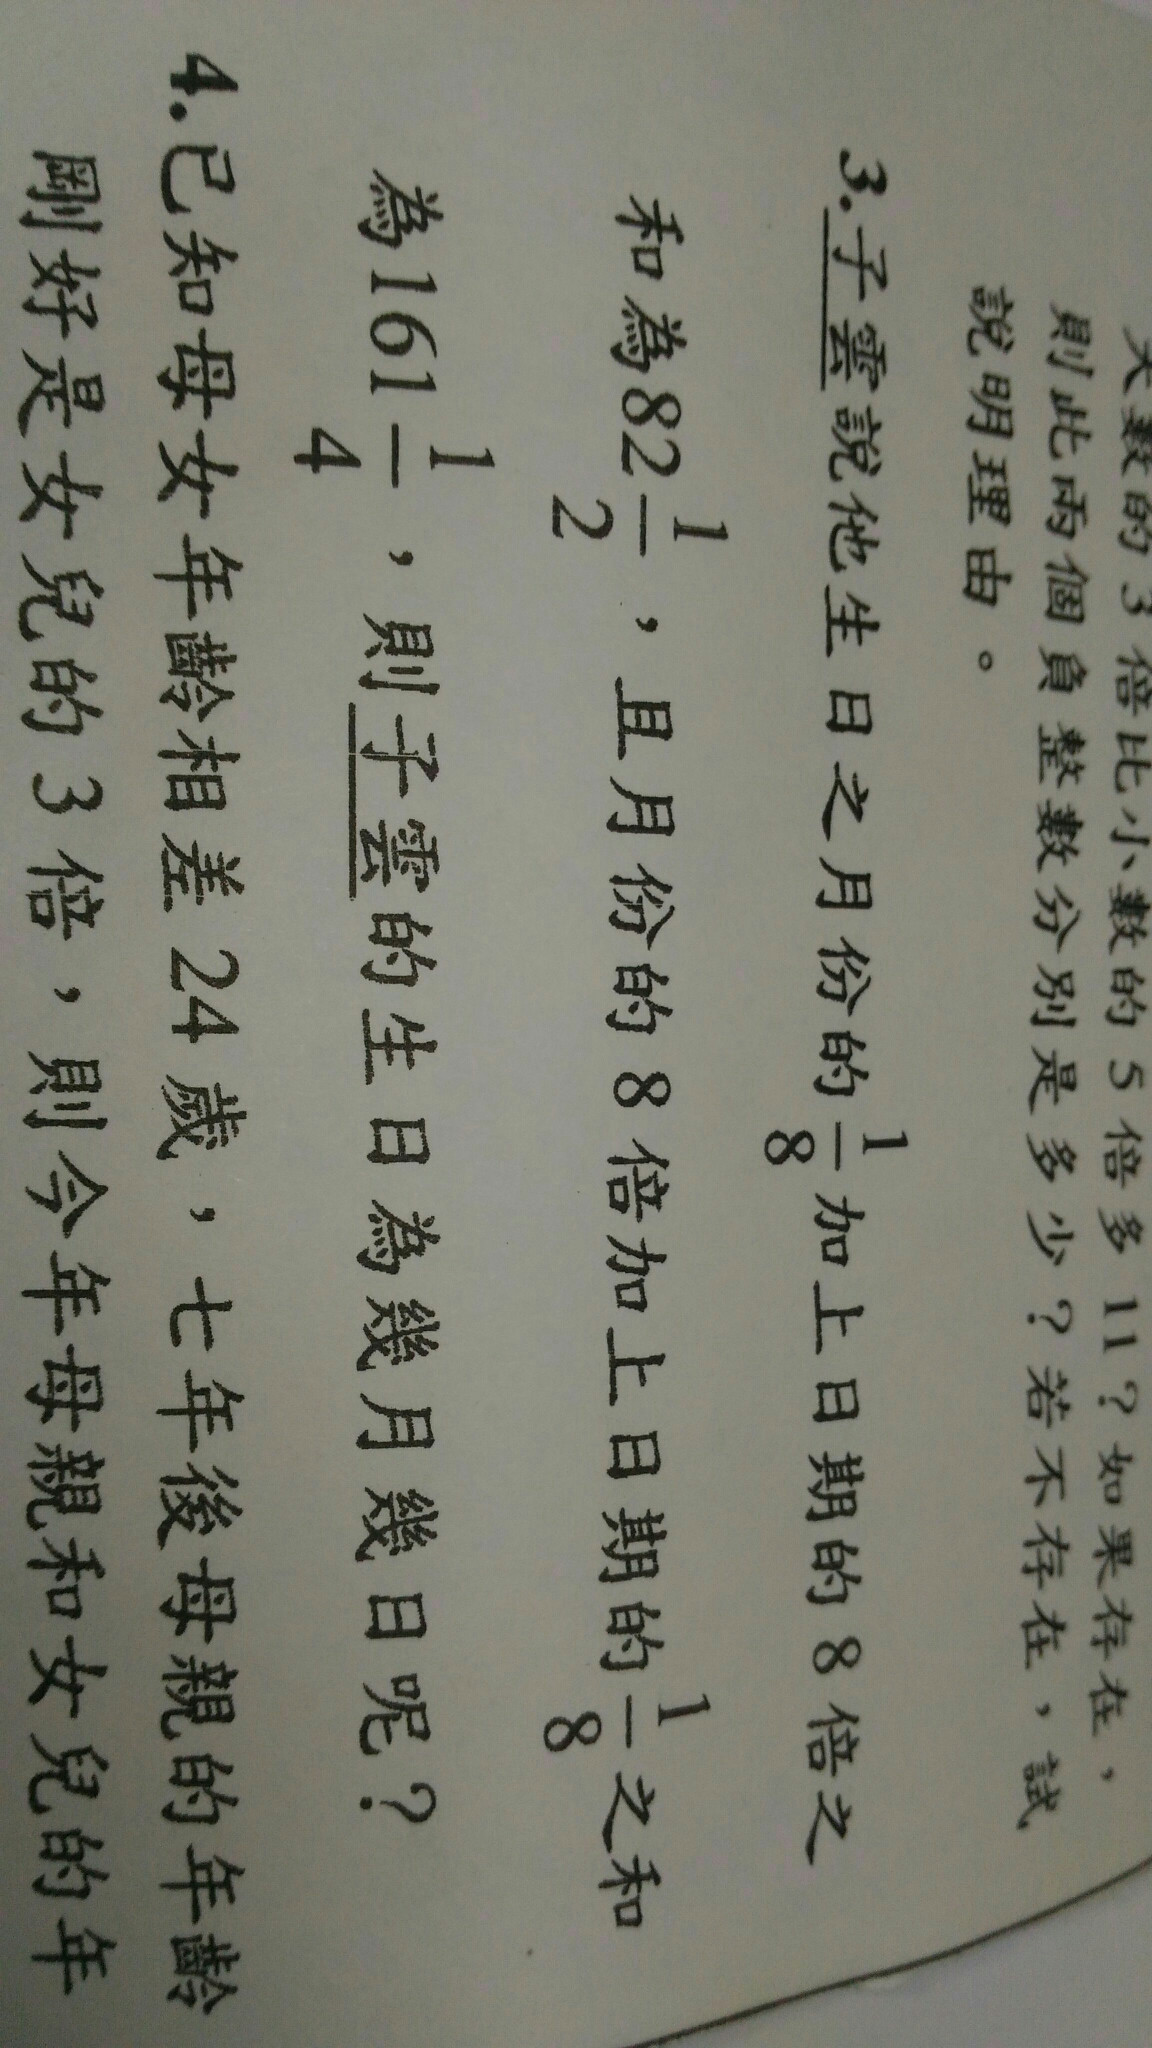 大數的3倍比小數的5倍多11？如果存在，
則此兩個負整數分別是多少？若不存在，試
說明理由。
3.子雲說他生日之月份的1/8加上日期的8倍之
和為82 1/2，且月份的8倍加上日期的1/8之和
為161 1/4，則子雲的生日為幾月幾日呢？
4.已知母女年齡相差24歲，七年後母親的年齡
剛好是女兒的3倍，則今年母親和女兒的年